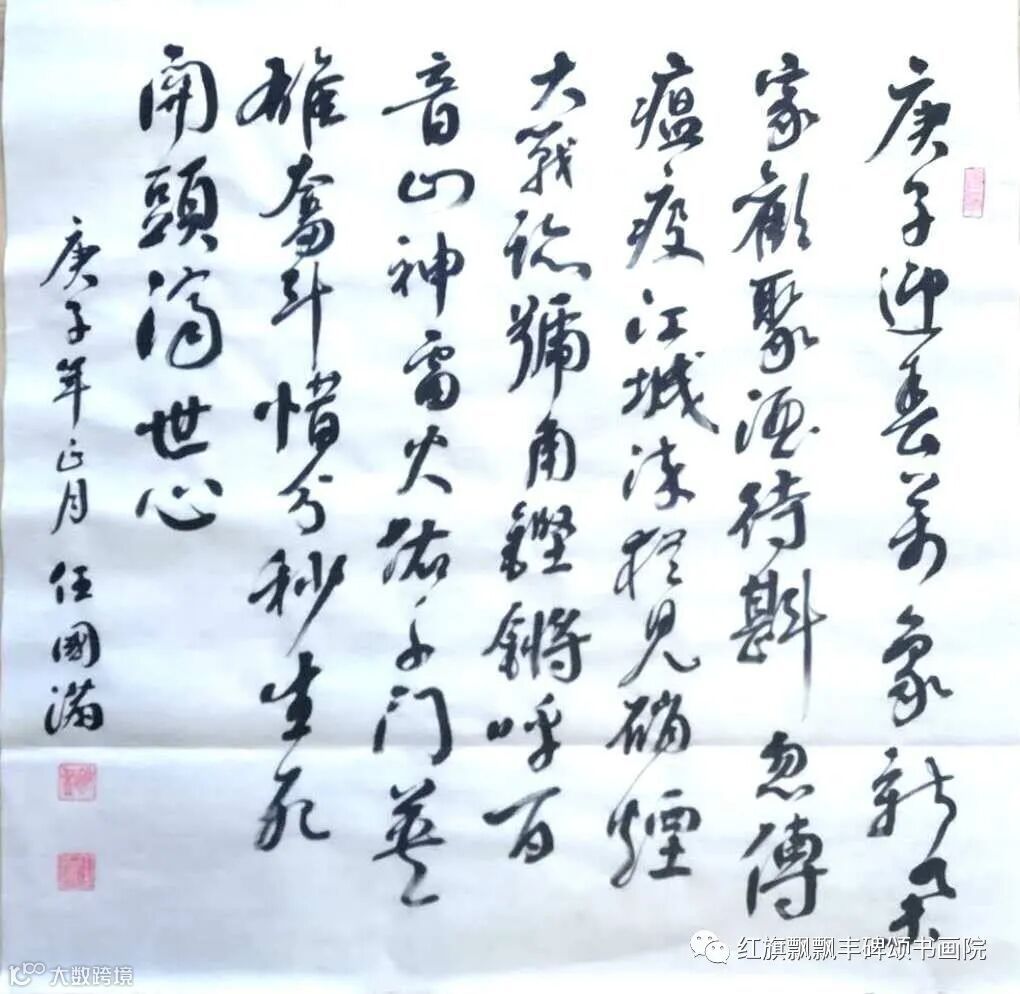 庚子迎春萬象新舉
家歡聚酒待斟忽傳
瘟疫江城染猶見硝煙
大戰臨號角鏗鏘呼百
音山神雷火佑千门英
雄奮斗惜分秒生死
開頭濟世心
庚子年正月任國滿
红旗飘飘丰碑颂书画院
大数跨境